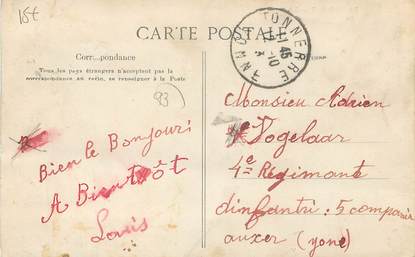 15€
CARTE POSTALE
Correspondance
Tous les pays étrangers n'acceptent pas la
correspondance au recto, se renseigner à la Poste
TONNERRE
YONNE
11 45
10
93
Bien le Bonjour:
A Bientôt
Louis
Monsieur Adrien
Vogelaar
4e Régimante
dinfantri: 5 companie
auxer (yone)